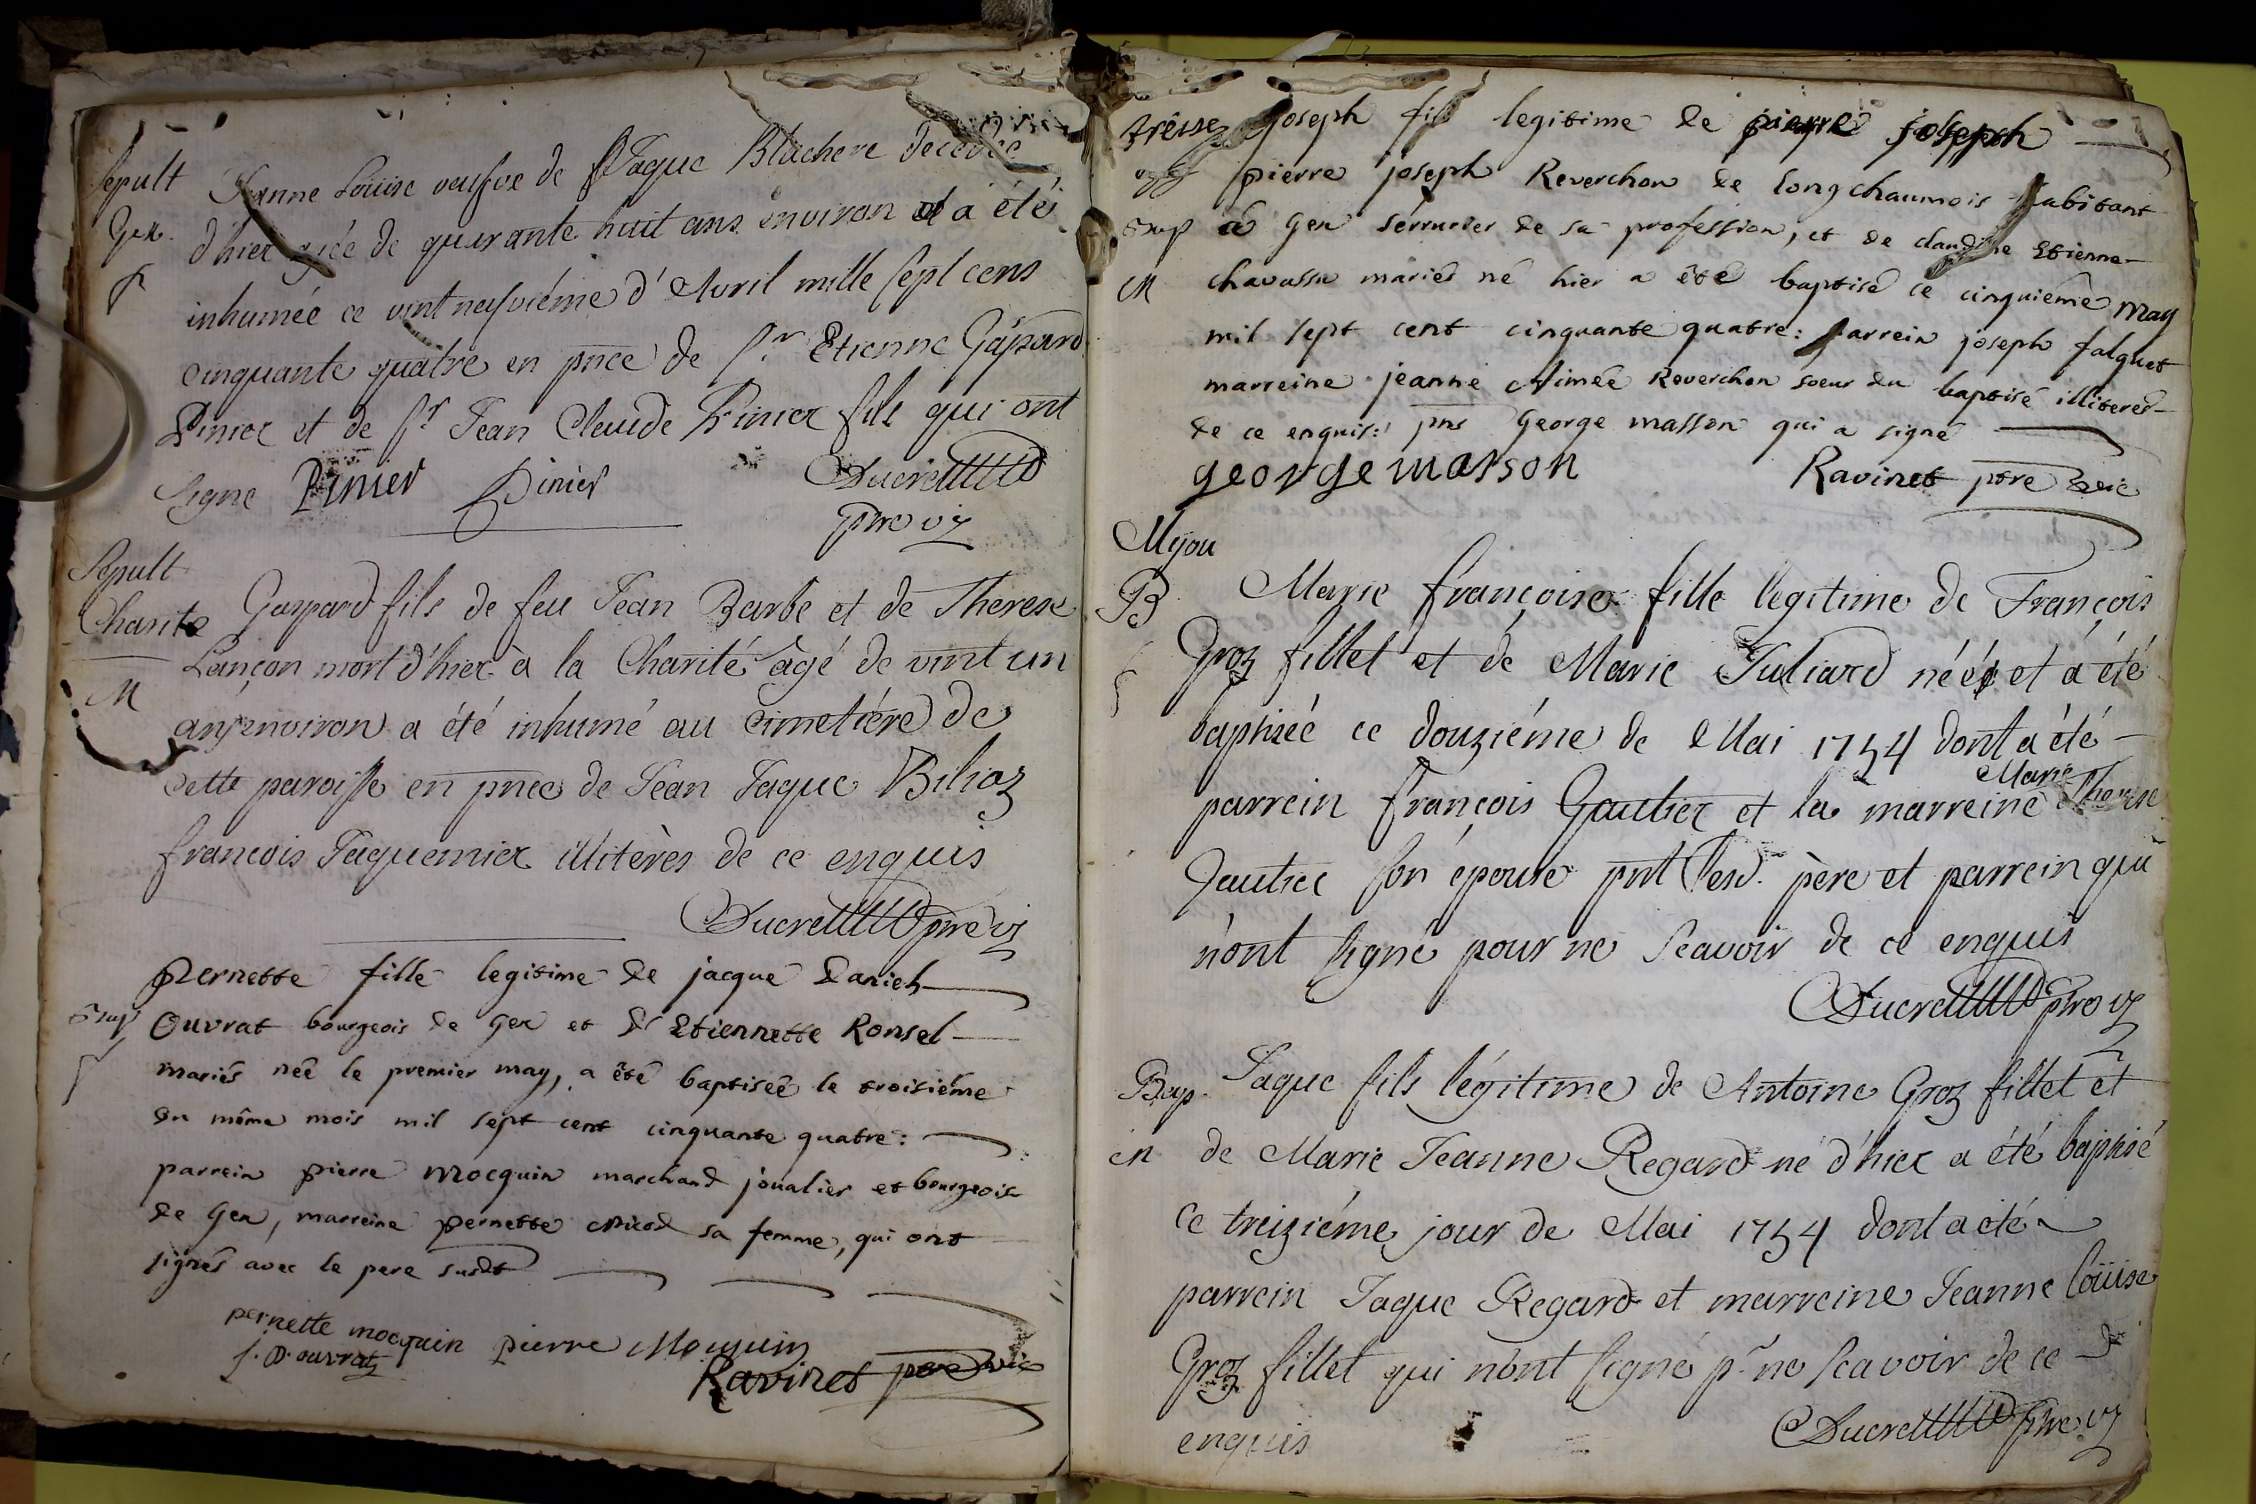 Sepult Jeanne Loüise veufve de Jaque Blachere decedee
Gex d'hier agée de quarante huit ans environ a été
inhumée ce vint neufviéme d'Avril mille sept cens
cinquante quatre en pnce de Sr Etienne Gaspard
Pinier et de Sr Jean Claude Pinier fils qui ont
signe Pinier Pinier Ducret
pre vic
Sepult
Charité Gaspard fils de feu Jean Barbe et de Therese
Lançon mort d'hier à la Charité âgé de vint un
M
ans environ a été inhumé au cimetiére de
cette paroisse en pnce de Jean Jaque Bilioz
francois Jaquemier illitères de ce enquis
Ducret pre vic
pernette fille legitime de jacque daniel
Bap ouvrat bourgeois de Gex et de Etiennette Ronsel
mariés née le premier may, a êté baptisée le troisiéme
du même mois mil sept cent cinquante quatre:
parrein pierre mocquin marchand joualier et bourgeois
de Gex, marreine pernette Nicod sa femme, qui ont
signés avec le pere susdt
pernette mocquin pierre Mocquin
j. D. ouvrat
Ravinet ptre vic
joseph fils legitime de pierre joseph
pierre joseph Reverchon de longchaumois habitant
Bap à Gex serrurier de sa profession, et de claudine Etienne
M chavassu mariés né hier a êté baptisé ce cinquiéme may
mil sept cent cinquante quatre: parrein joseph falquet
marreine jeanne Aimée Reverchon soeur du baptisé illiteres
de ce enquis: pns George masson qui a signé
george masson Ravinet ptre vic
Mijou
B Marie françoise fille legitime de François
Groz fillet et de Marie Juliard née et a été
baptisée ce douziéme de Mai 1754 dont a été
parrein françois Gautier et la marreine Marie Therese
Gautier son épouse pnt lesd. père et parrein qui
n'ont signé pour ne scavoir de ce enquis
Ducret pre vic
Bap. Jaque fils légitime de Antoine Groz fillet et
M de Marie Jeanne Regard né d'hier a été baptisé
ce treiziéme jour de Mai 1754 dont a été
parrein Jaque Regard et marreine Jeanne Loüise
Groz fillet qui n'ont signé pr ne scavoir de ce
enquis Ducret pre vic